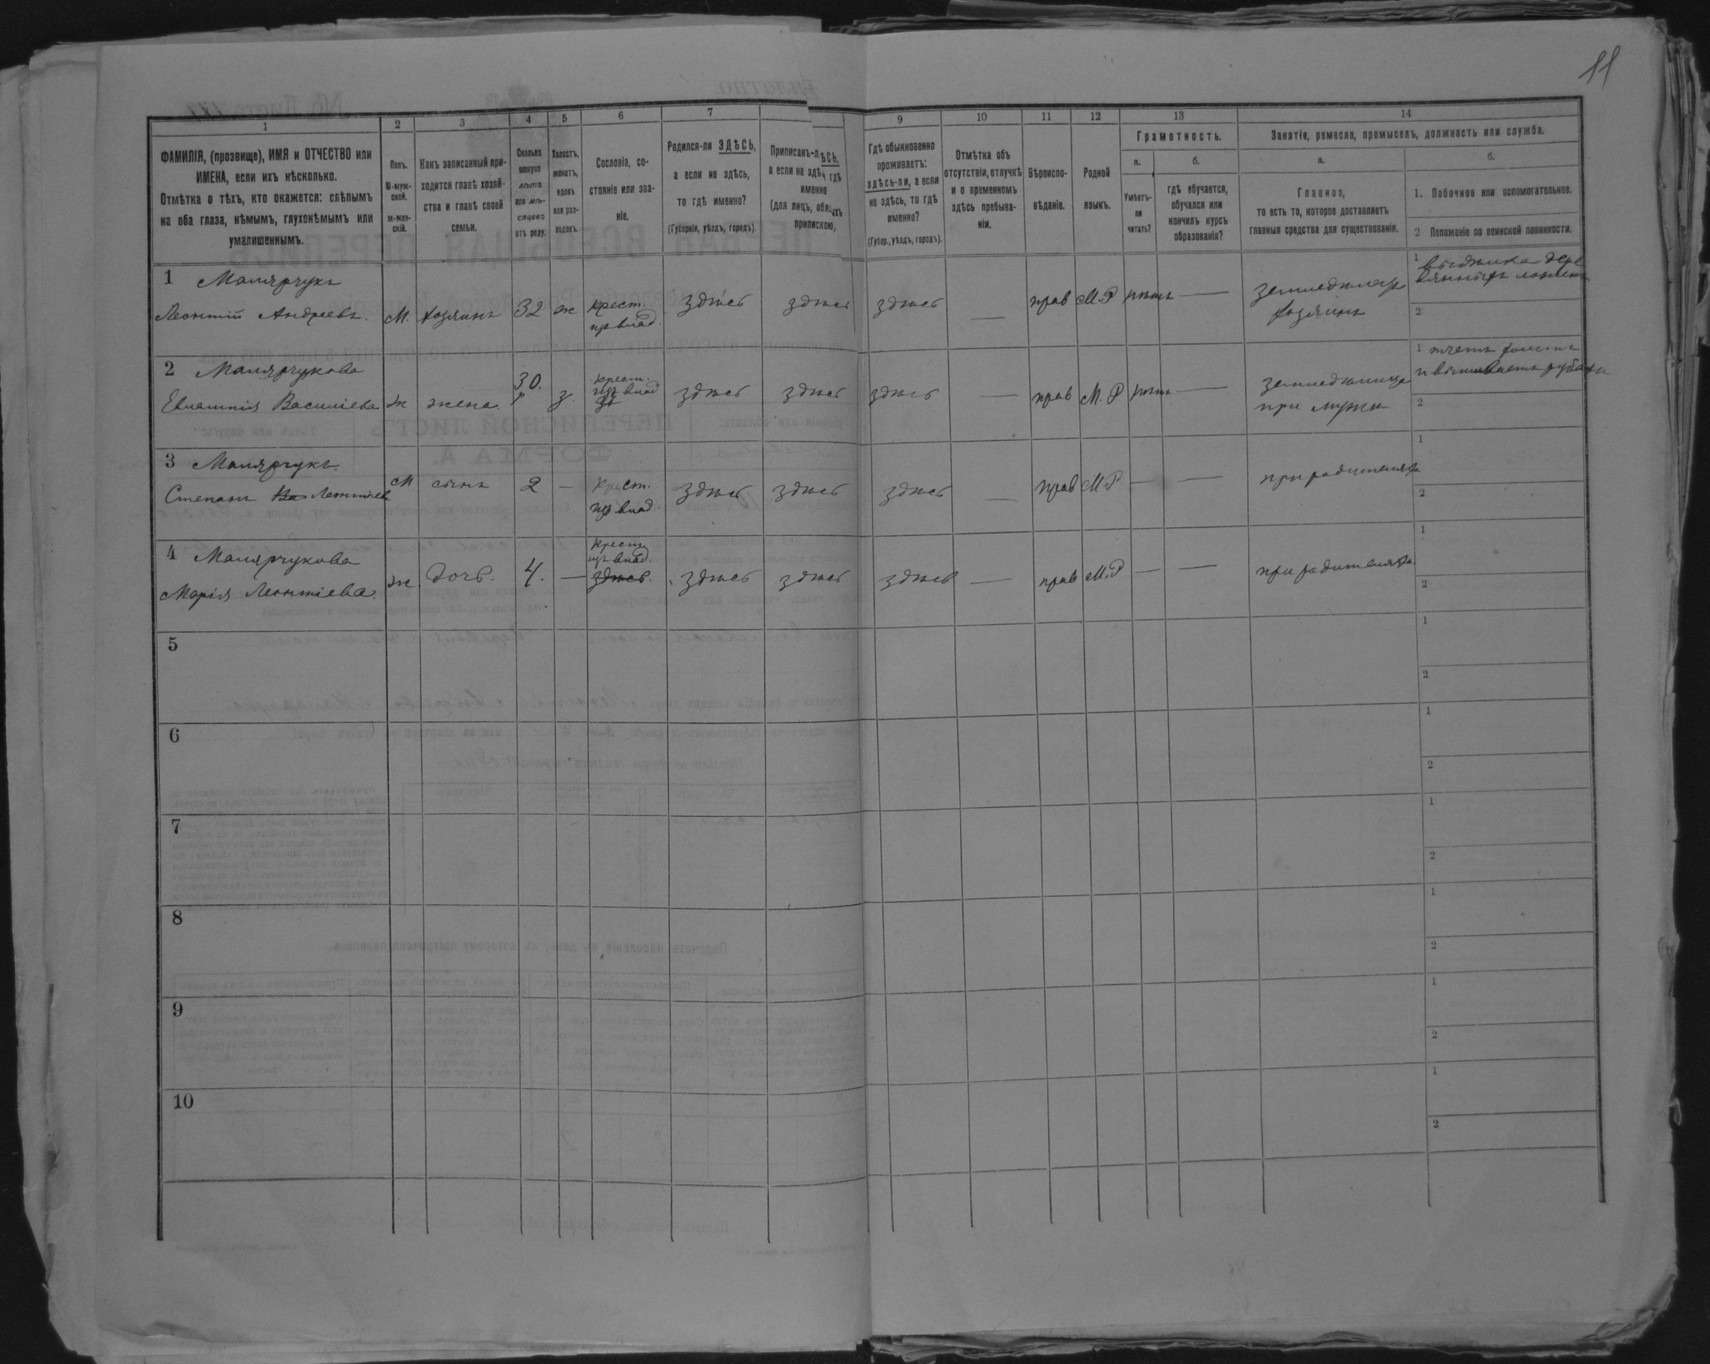 11
1 2 3 4 5 6 7 9 10 11 12 13 14
ФАМИЛІЯ, (прозвище), ИМЯ и ОТЧЕСТВО или
ИМЕНА, если ихъ нѣсколько.
Отмѣтка о тѣхъ, кто окажется: слѣпымъ
на оба глаза, нѣмымъ, глухонѣмымъ или
умалишеннымъ.
Полъ.
М-муж-
ской.
ж-жен-
скій.
Какъ записанный при-
ходится главѣ хозяй-
ства и главѣ своей
семьи.
Сколько
минуло
лѣтъ
или мѣ-
сяцевъ
отъ роду.
Холостъ,
женатъ,
вдовъ
или раз-
веденъ.
Сословіе, со-
стояніе или зва-
ніе.
Родился-ли ЗДѢСЬ,
а если не здѣсь,
то гдѣ именно?
(Губернія, уѣздъ, городъ).
Приписанъ-л ѢСЬ,
а если не здѣ , гдѣ
именно
(для лицъ, обя хъ
припискою)
Гдѣ обыкновенно
проживаетъ:
здѣсь-ли, а если
не здѣсь, то гдѣ
именно?
(Губер., уѣздъ, городъ).
Отмѣтка объ
отсутствіи, отлучкѣ
и о временномъ
здѣсь пребыва-
ніи.
Вѣроиспо-
вѣданіе.
Родной
языкъ.
Грамотность.
а.
б.
Умѣетъ-
ли
читать?
гдѣ обучается,
обучался или
кончилъ курсъ
образованія?
Занятіе, ремесло, промыселъ, должность или служба.
а.
б.
Главное,
то есть то, которое доставляетъ
главныя средства для существованія.
1. Побочное или вспомогательное.
2 Положеніе по воинской повинности.
1 Малярчукъ
Леонтій Андреевъ. М. хозяинъ 32 ж крест. из влад. здѣсь здѣсь здѣсь — прав М.Р нѣтъ — земледѣлецъ хозяинъ
1
2
2 Малярчукова
Василіева ж жена. 30. з крест. из влад здѣсь здѣсь здѣсь — прав М.Р нѣтъ — при мужи
1
2
3 Малярчукъ.
Степанъ Леонтіев М сынъ 2 — Крест. из влад. здѣсь здѣсь здѣсь — прав М.Р — — при родителяхъ
1
2
4 Малярчукова
Марія Леонтіева ж дочь. 4. — крест. из влад. здѣсь. здѣсь здѣсь здѣсь — прав М.Р — — при родителяхъ
1
2
5
1
2
6
1
2
7
1
2
8
1
2
9
1
2
10
1
2